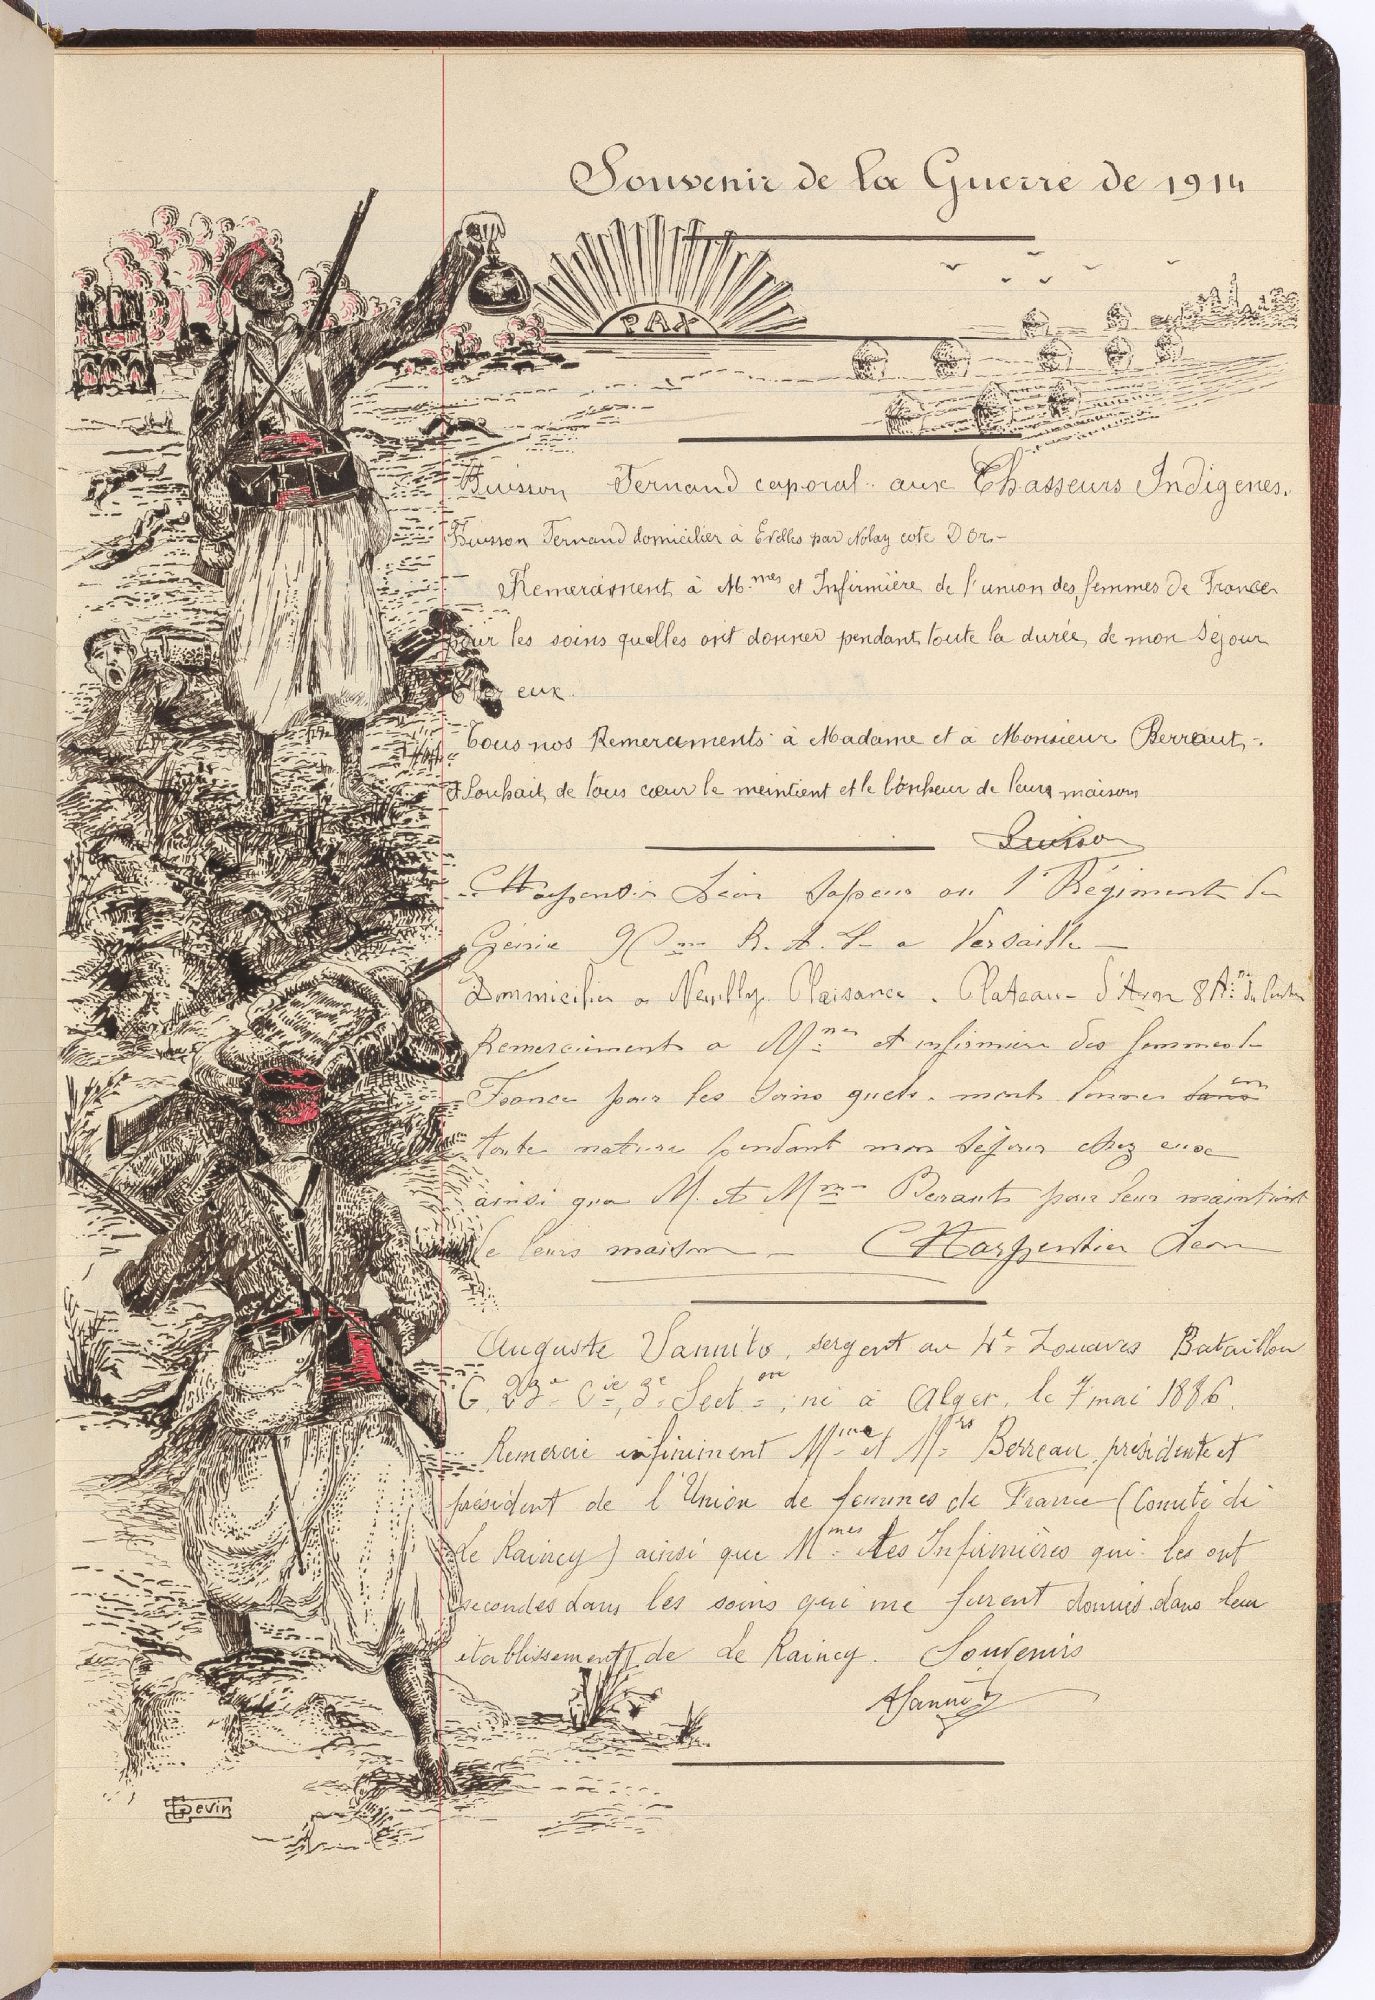 Souvenir de la Guerre de 1914
PAX
Buisson Fernand caporal aux Chasseurs Indigenes.
Buisson Fernand domicilier à Evelles par Nolay cote Dor-
Remerciment à M.mes et Infirmière de l'union des femmes de France
pour les soins quelles ont donner pendant toute la durée de mon Séjour
eux.
Tous nos Remerciments à Madame et à Monsieur Berraut,
et Souhait de tous cœur le meintient et le bonheur de leurs maison
Buisson
Charpentier Léon Sapeur au 1r Régiment du
Génie a Versaille
Dommicilier a Neuilly Plaisance. Plateau d'Avron 8 A.ue du
Remerciement a Mmes et infirmière des femmes de
France pour les soins quels. mont donner
toute nature pendant mon séjour chez eux
ainsi qua M. et Mme Beraut pour leur maintient
de leurs maison - CHarpentier Leon
Auguste Vannito, sergent au 4e Zouaves Bataillon
G, 23e Cie, 3e Section, né à Alger, le 7 mai 1886.
Remercie infiniment Mme et Mrs Berreau, présidente et
président de l'Union de femmes de France (Comité de
Le Raincy) ainsi que Mmes les Infirmières qui les ont
secondés dans les soins qui me furent donnés dans leur
établissement de Le Raincy. Souvenirs
AVannito
Devin